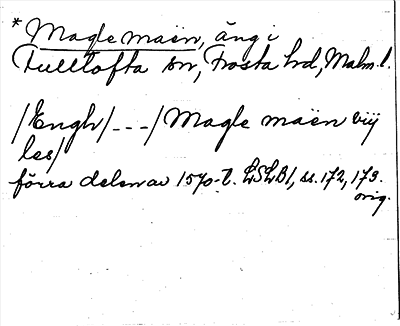 * Magle maën, äng i
Fulltofta sn, Frosta hd, Malm. l.
/Engh/ _ _ _ / Magle maën viij
les/
förra delen av 1570-t. LSLB1, ss. 172, 173.
orig.